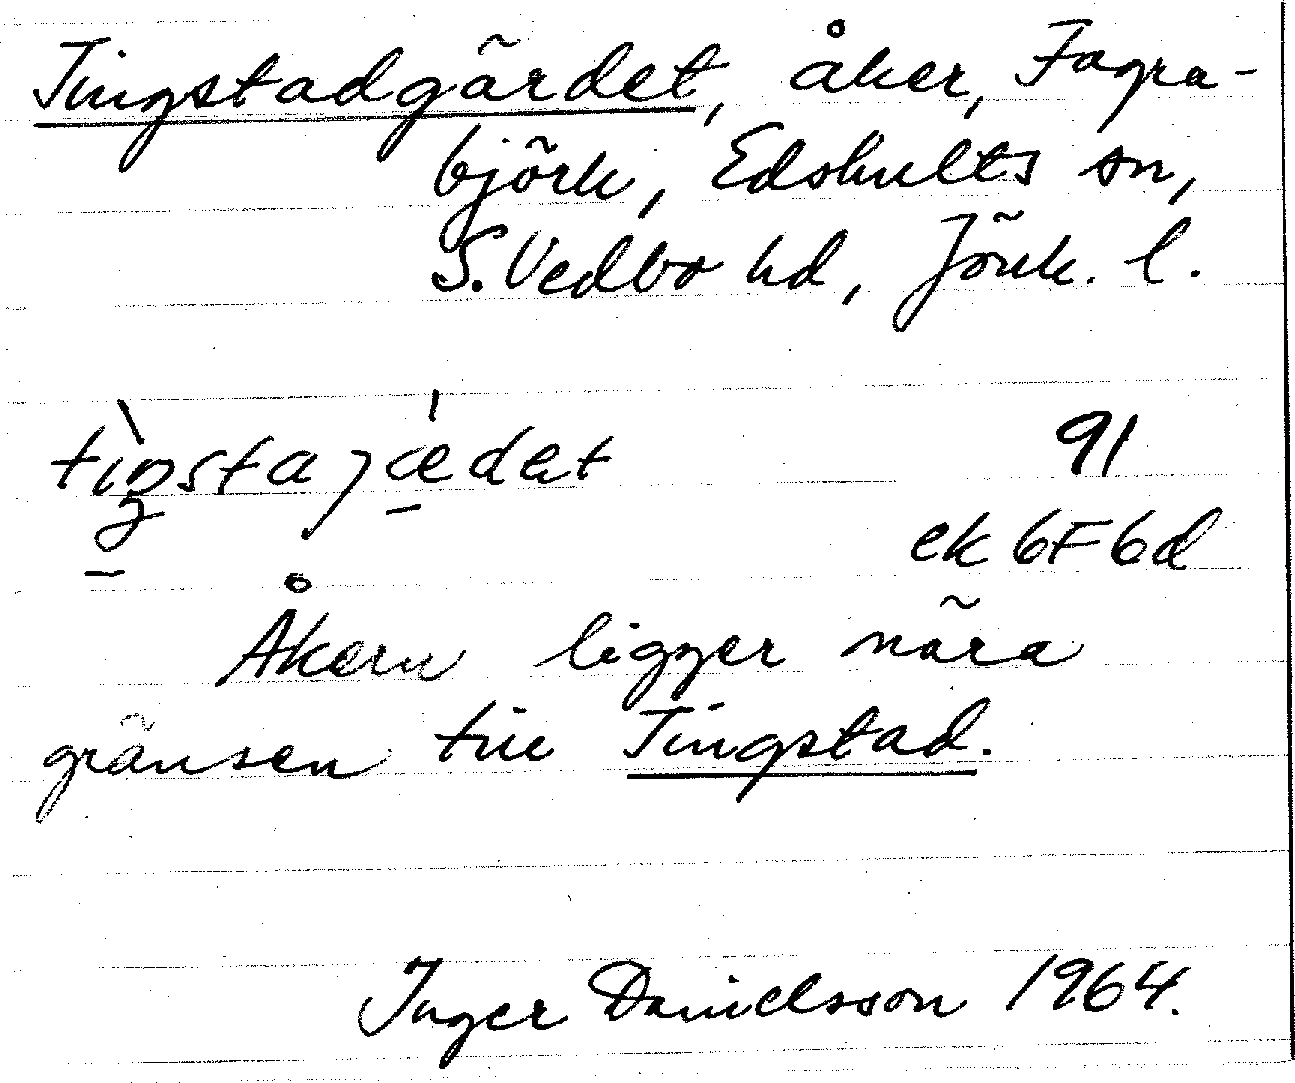 Tingstadgärdet, åker, Fagra-
björk, Edshults sn,
S. Vedbo hd, Jönk. l.
91
ek 6F6d
Åkern ligger nära
gränsen till Tingstad.
Inger Danielsson 1964.